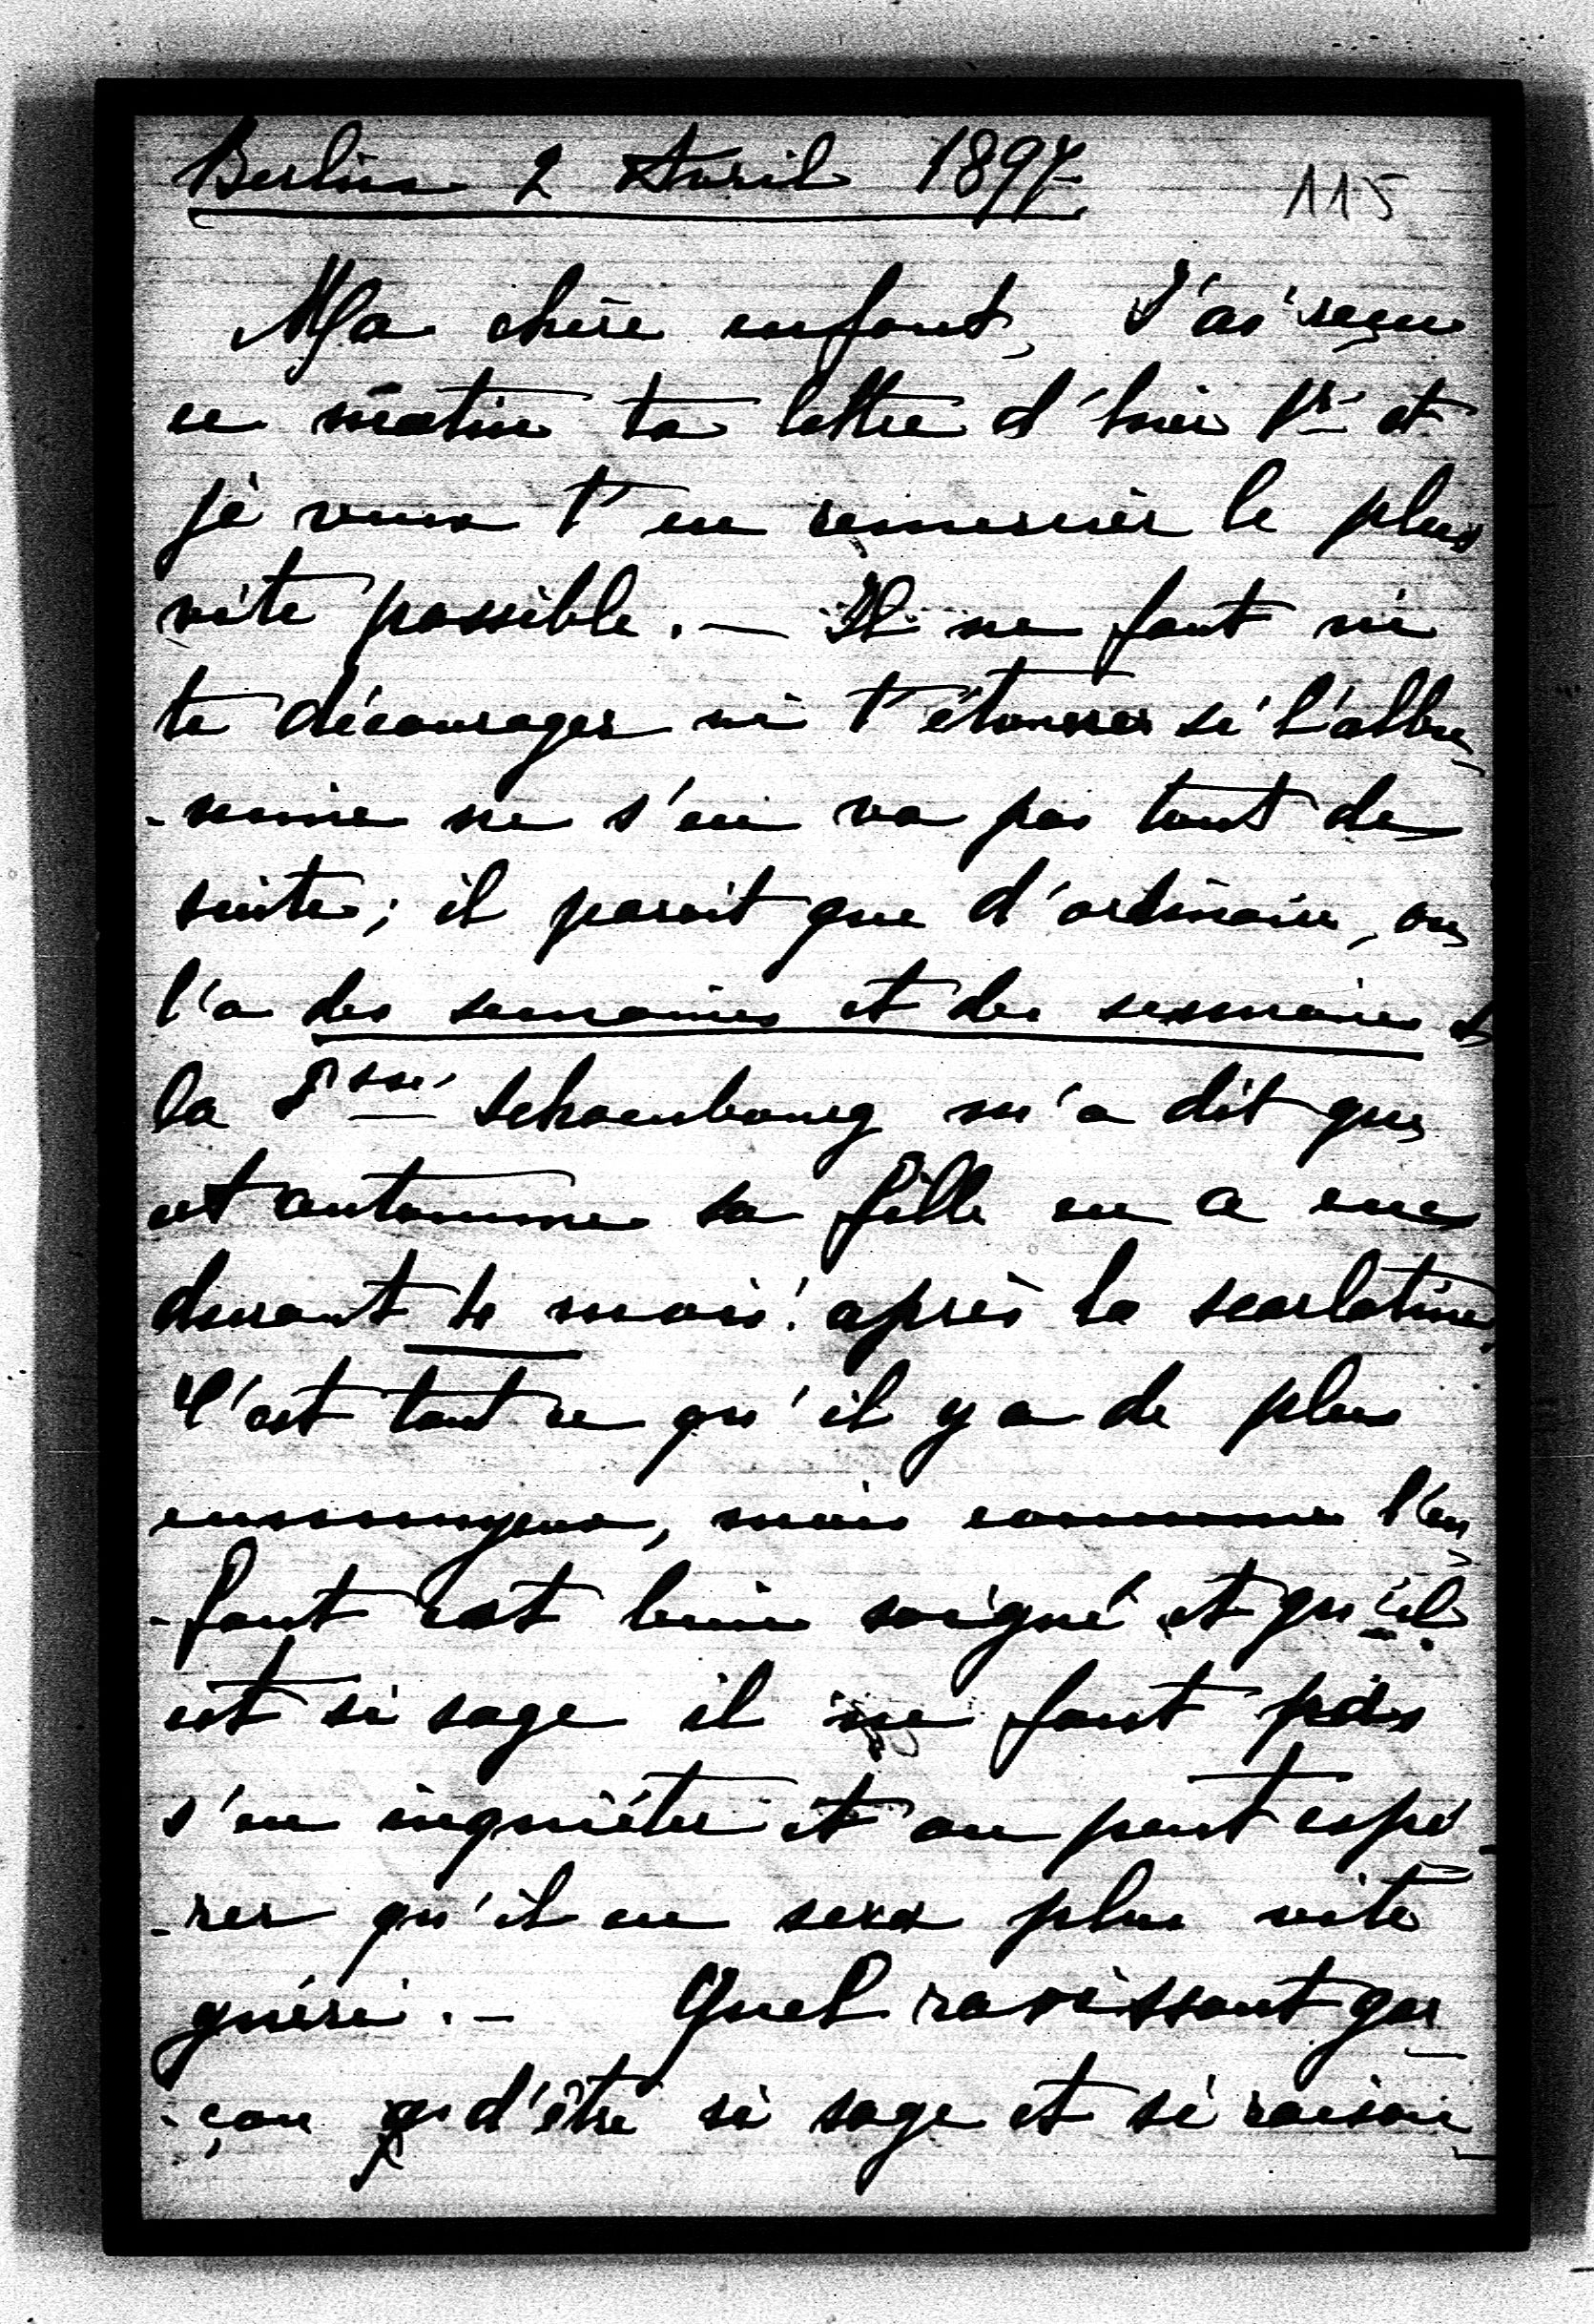 Berlin 2 Avril 1897.
115
Ma chère enfant, J'ai reçu
ce matin ta lettre d'hier 1er et
je veux t'en remercier le plus
vite possible. — Il ne faut ni
te décourager ni t'étonner si l'albu-
-mine ne s'en va pas tout de
suite; il parait que d'ordinaire, on
l'a des semaines et des semaines &
la Psse Schoenbourg m'a dit que
cet automne sa fille en a eu
durant 4 mois! après la scarlatine.
C'est tout ce qu'il y a de plus
ennuyeux, mais comme l'en-
-fant est bien soigné et qu'il
est si sage il ne faut pas
s'en inquiéter et on peut espé-
-rer qu'il en sera plus vite
guéri. — Quel ravissant gar-
-çon d'être si sage et si raison-